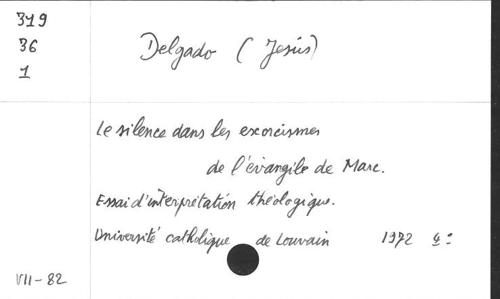 319
36
1
Delgado (Jesús)
Le silence dans les exorcismes
de l'évangile de Marc.
Essai d'interprétation théologique.
Université catholique de Louvain 1972 4º
VII-82